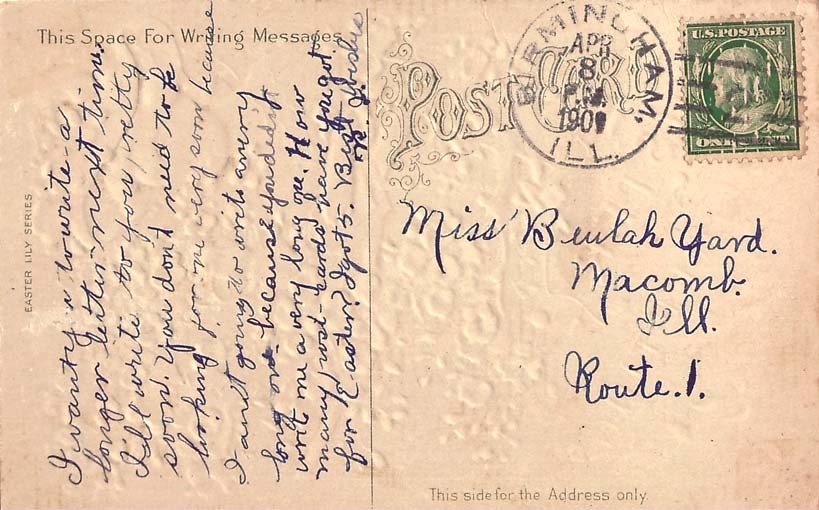 This Space For Writing Messages
EASTER LILY SERIES
I want u to write a
longer letter next time.
I'll write to you pretty
soon. You don't need to be
looking for me very soon because
I ain't going to write a very
long one because you didn't
write me a very long one. How
many post-cards have you got
for Easter? I got 5. Best wishes
POST CARD
BIRMINGHAM,
APR
8
P.M.
1909
ILL.
U.S. POSTAGE
ONE CENT
Miss Beulah Yard.
Macomb.
Ill.
Route.1.
This side for the Address only.